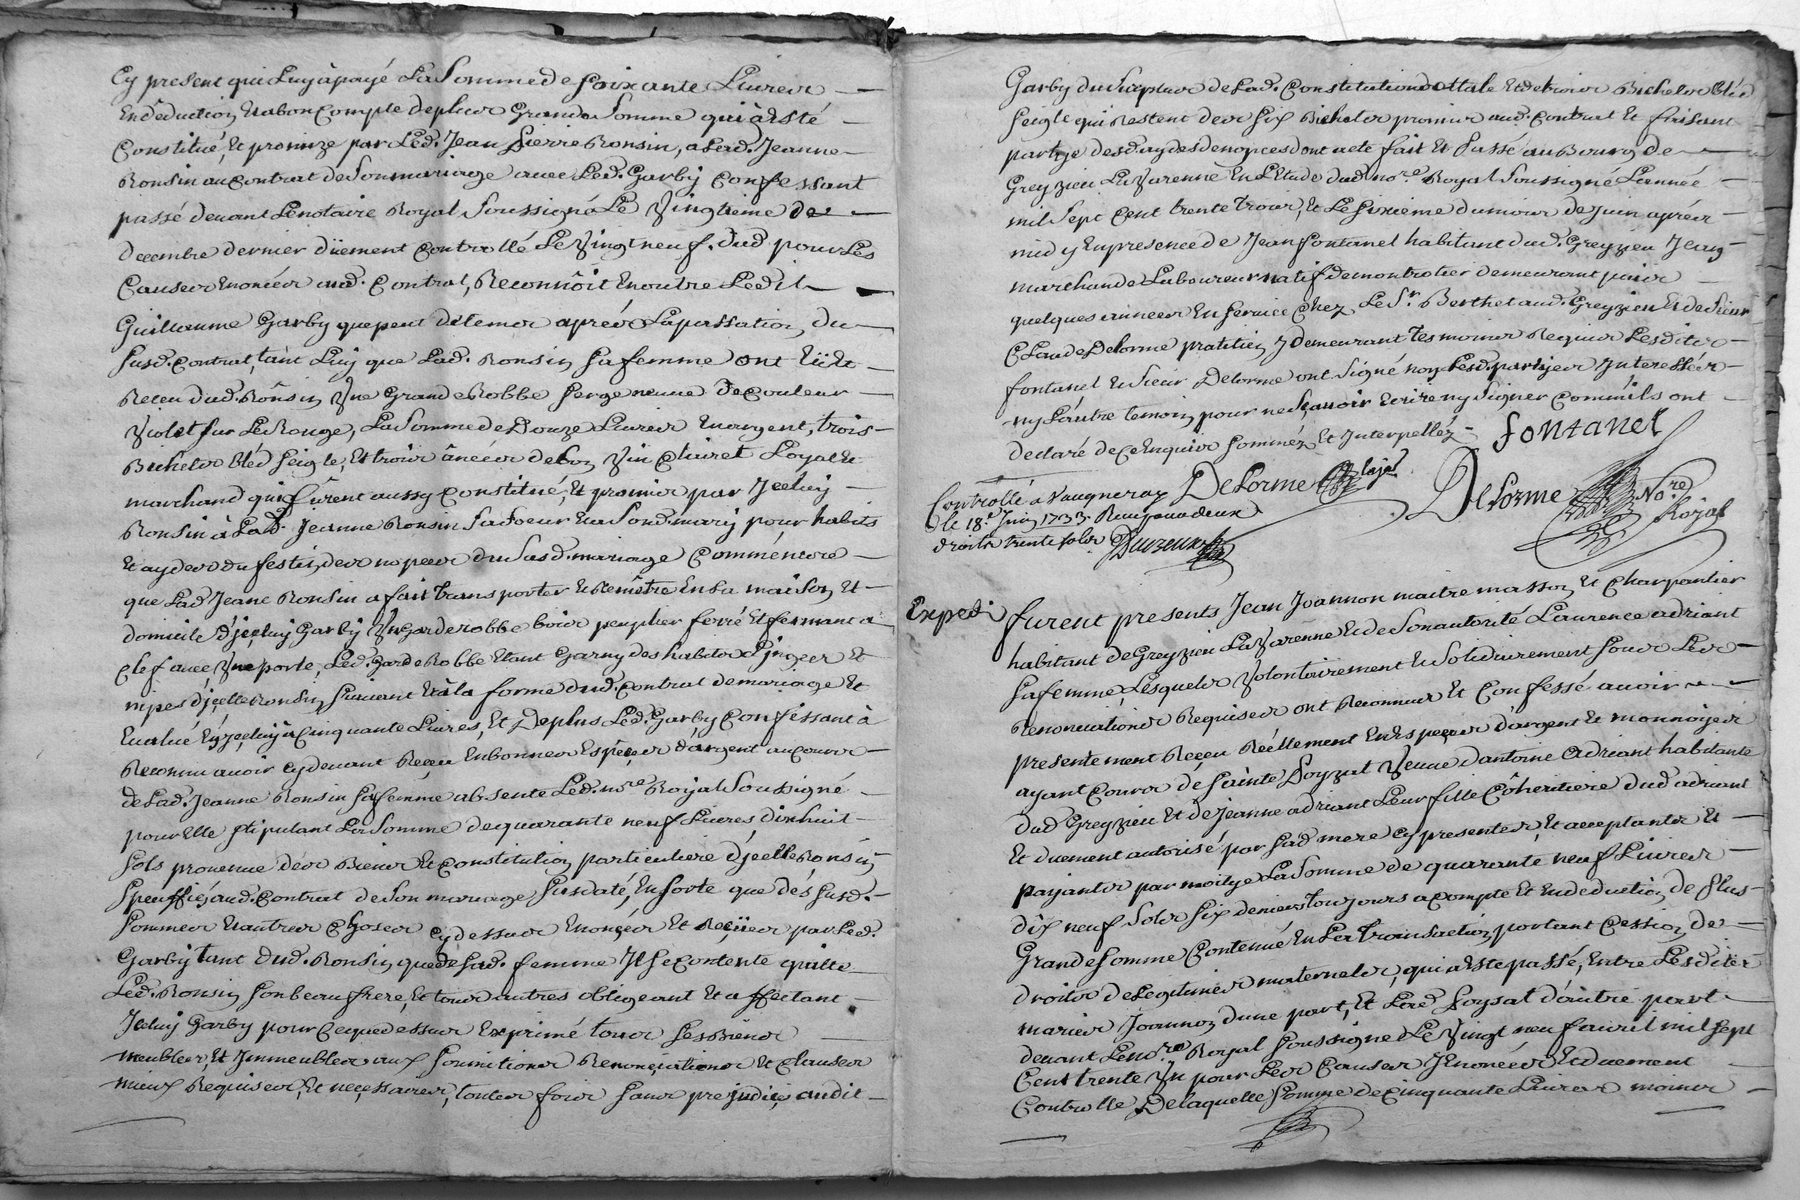 Cy present qui Luy a payé La Somme de soixante Livres
En déduction et a bon Compte de plus Grande Somme qui a esté
Constitué, et promize par Led. Jean Pierre Ronsin, a Lad. Jeanne
Ronsin au Contrat de Son mariage avec Led. Garby Confessant
passé devant Le notaire Royal Soussigné Le Vingtieme de
decembre dernier düement Controllé Le Vingt neuf. dud. pour Les
Causes Enoncés aud. Contrat, Reconnôit En outre Ledit
Guillaume Garby que peu de tems après La passation du
susd. Contrat, tant Luy que Lad. Ronsin sa femme ont Eü et
Reçeu dud. Ronsin Une Grande Robbe serge neuve De Couleur
Violet sur Le Rouge, La Somme de Douze Livres En argent, trois
Bichets bléd seigle, et trois ânées de bon Vin Clairet Loyal et
marchand qui fûrent aussy Constitué, et promis par Iceluy
Ronsin à Lad. Jeanne Ronsin Sa Soeur et a Sond. mary pour habits
Et aydes du festin des nopces du Susd. mariage Comme encore
que Lad Jeane Ronsin a fait transporter et Remêtre En La maison et
domicile d'jceluy Garby Un Garderobbe bois peuplier ferré et fermant a
Clef avec Une porte, Led. Garde Robbe Etant Garny des habits Linges et
nipes d'jcelle Ronsin suivant et à la forme dud. Contrat de mariage et
Evalué Cinquante Livres, Et De plus Led. Garby Confessant à
Reconnu avoir cy devant Reçeu En bonnes Espèçes d'argent au Cours
de Lad. Jeanne Ronsin sa femme absente Led. nore Royal Soussigné
pour Elle stipulant La Somme de quarante neuf Livres dix huit
sols provenue des Biens et Constitution particuliere d'jcelle Ronsin
speciffié aud. Contrat de Son mariage susdaté, En sorte que des susd.
sommes et autres Choses cy dessus Enoncés et Reçües par Led.
Garby tant dud. Ronsin que de sad. femme Il se Contente quitte
Led. Ronsin son beau frere, et tous autres obligeant et affectant
Iceluy Garby pour Ce que dessus Exprimé tous ses Biens
meubles, et Immeubles aux soumitions Renonciations et Clauses
mieux Requises, et neçessaires, toutes fois sans prejudice audit
Garby du surplus de Lad. Constitution dottale et de trois Bichets bléd
seigle qui Restent des six Bichets promis aud. Contrat et faisant
partye desd aydes de nopces dont acte fait et passé au Bourg de
Greyzieu La Varenne En L'Etude dud nore. Royal Soussigné L'année
mil Sept Cent trente trois, et Le sixieme du mois de Juin après
midy En presence de Jean fontanel habitant dud. Greyzieu Jean
marchand Laboureur natif de montrotier demeurant puis
quelques années En service Chez Le Sr. Berthet aud. Greyzieu et de sieur
Claude Delorme pratitien y demeurant tesmoins Requis Lesdits
fontanel et sieur Delorme ont signé non Lesd. partyes Interessées
ny L'autre temoin pour ne sçavoir Ecrire ny signer Comm'ils ont
declaré de Ce Enquis sommez et Interpellez
fontanel
Delorme
Delorme Nore Royal
Controllé a Vaugneray
le 18e Juin 1733. Reçu
droits trente sols
Expedi
furent presents Jean Joannon maitre masson et Charpantier
habitant de Greyzieu La Varenne et de Son autorité Laurence adriant
sa femme, Lesquels Volontairement et solidairement sous Les
Renonciations Requises ont Reconnus et Confessé avoir
presentement Reçeu Réellement En Espèçes d'argent et monnoyes
ayant Cours de sainte Loyzat Veuve d'antoine adriant habitante
dud Greyzieu et de Jeanne adriant Leur fille Cöheritiere dud adriant
Et duement autorisé par sad mere cy presentes, et acceptantes Et
payantes par moitye La somme de quarante neuf Livres
dix neuf sols six deniers toujours a Compte et En deduction de plus
Grande somme Contenuë En La transaction portant Cession de
droits de Legitimes maternels, qui a Este passé, Entre Lesdits
mariés Joannon d'une part, et Lad Loysat d'autre part
devant Le nore Royal soussigné Le Vingt neuf avril mil sept
Cens trente Un pour Les Causes Y Enoncés et duement
Controllé De laquelle somme de Cinquante Livres moins